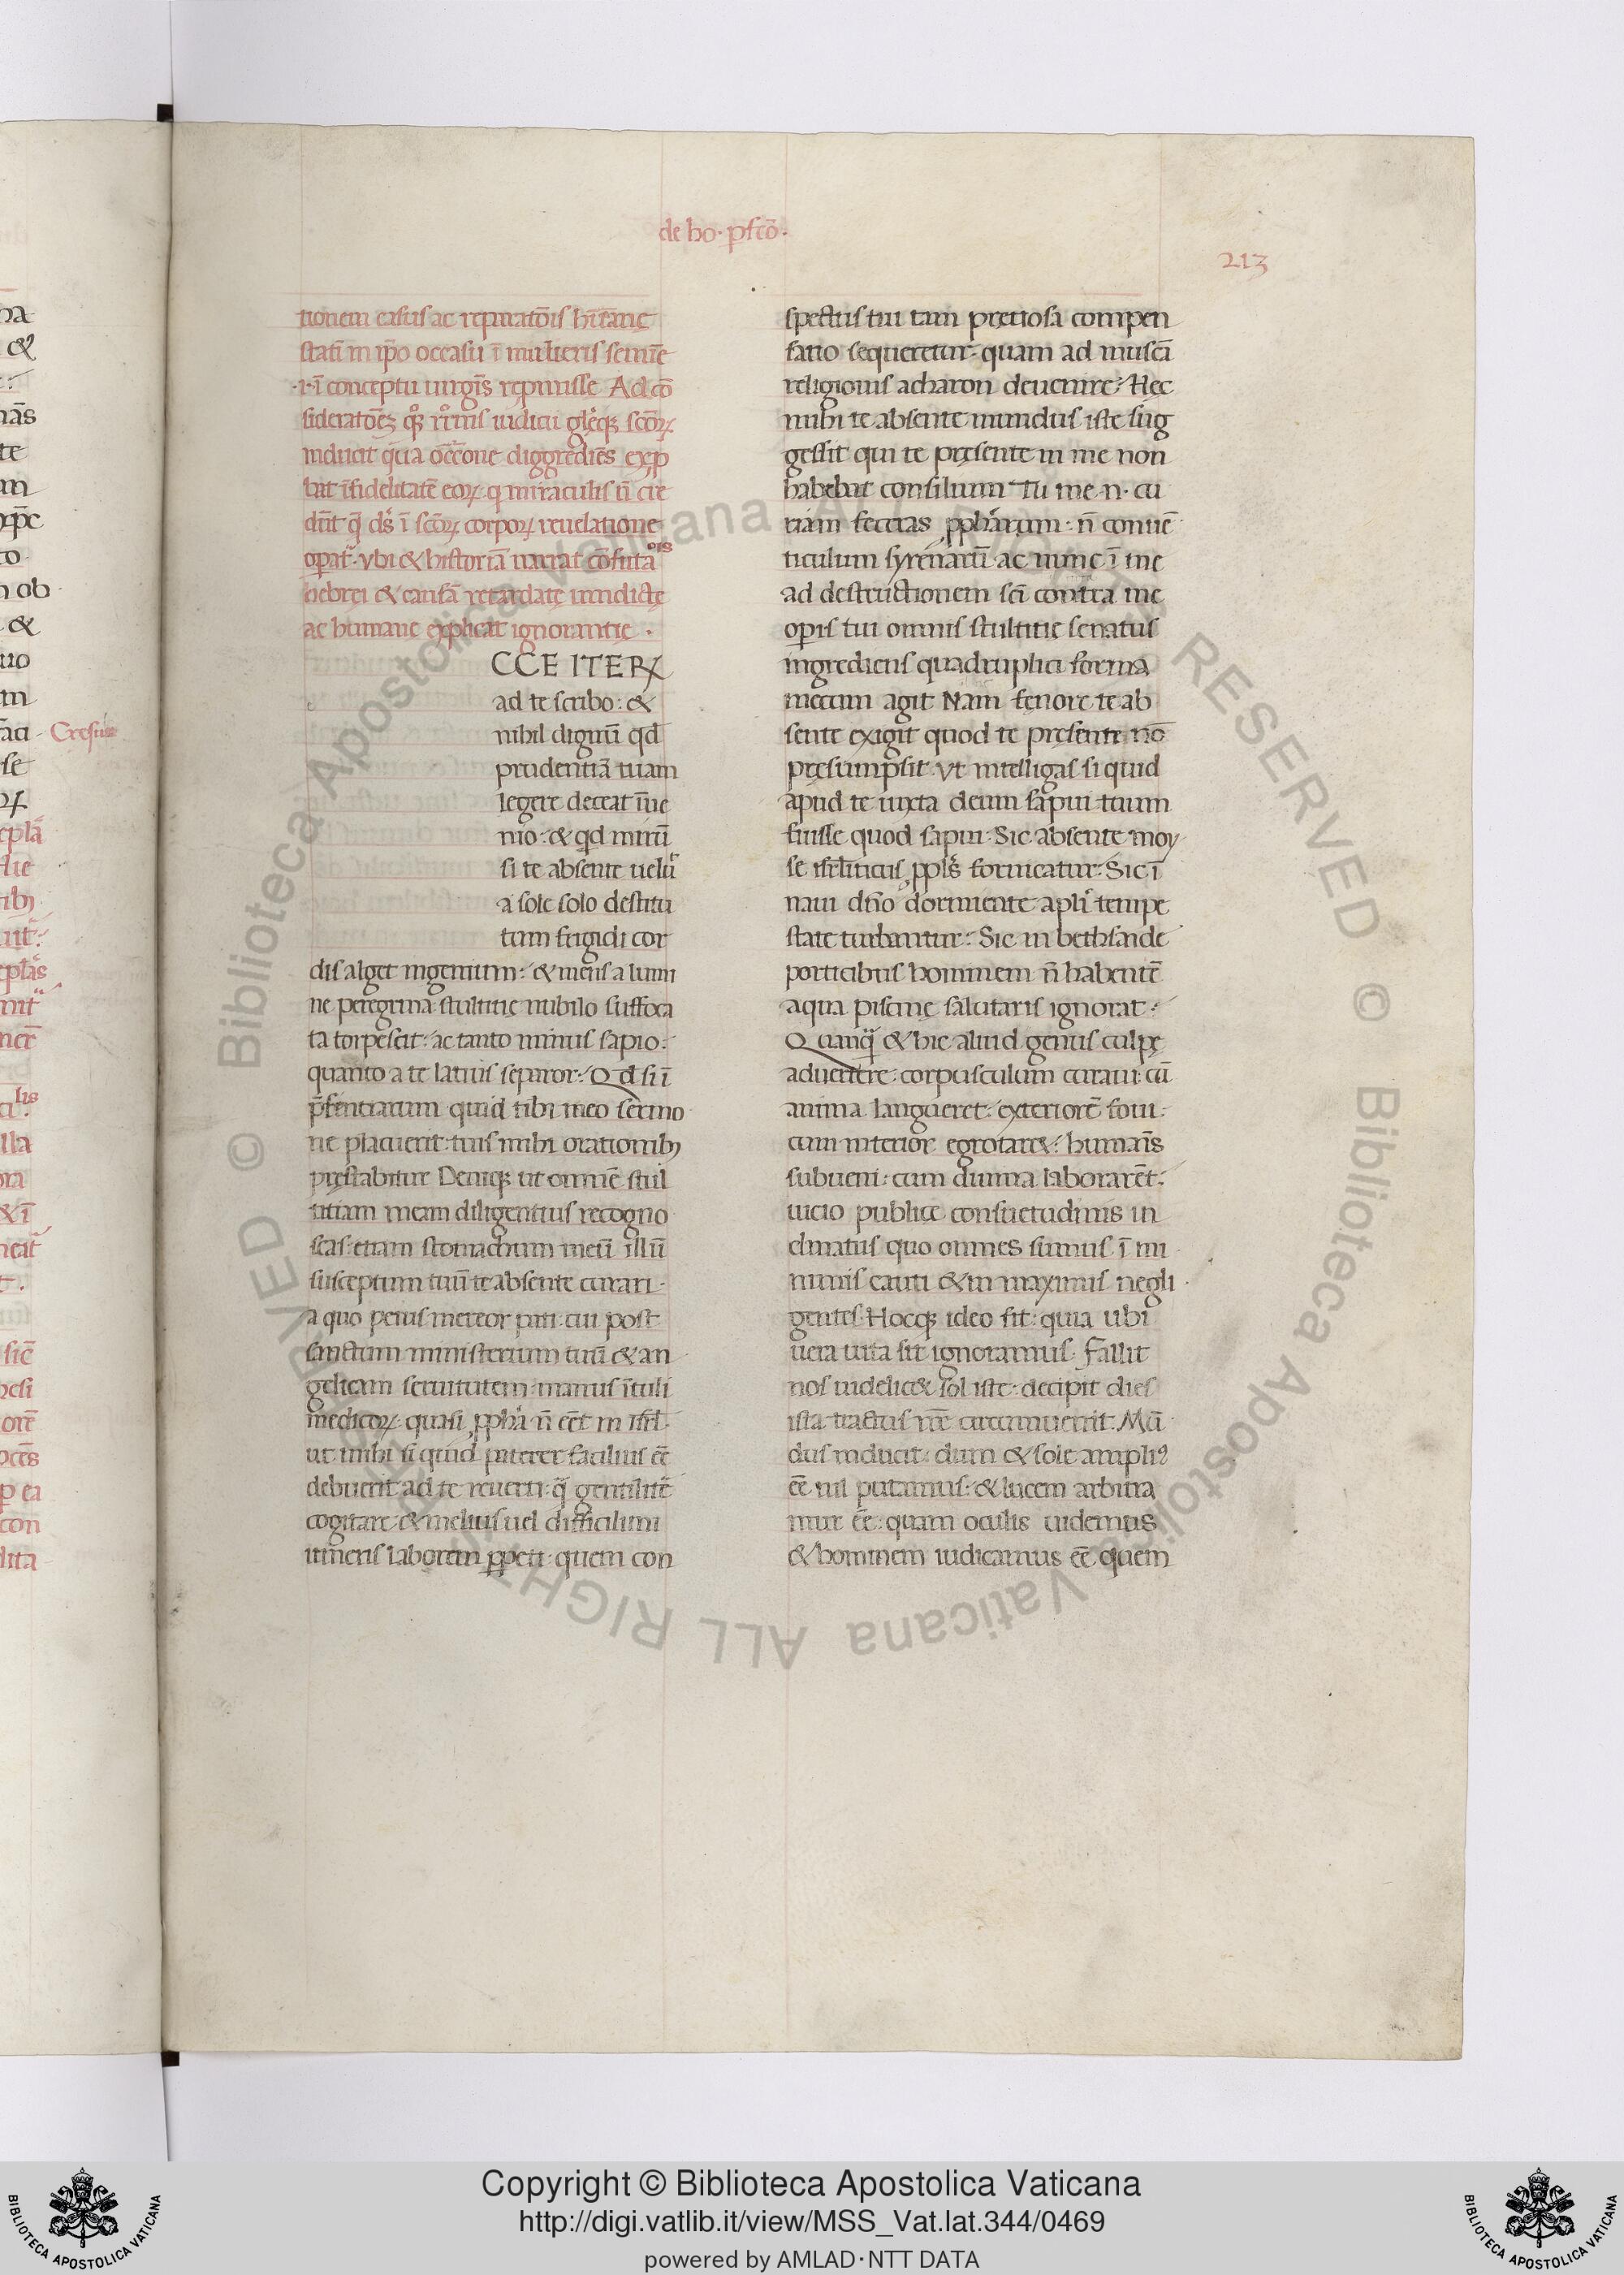 de ho. pfcō.
213
tionem casus ac reparatōis hūanę
statī in ipo occasu ī mulieris semīe
.i. ī conceptu uirgīs repuisse Ad cō
inducit qua occōne diggrediēs exp
bat īfidelitatē eoꝝ q miraculis n̄ cre
dn̄t q ds ī scōꝝ corpoꝝ reuelatione
opat. vbi & historiā narrat cōfuta ois
hebrei & causā retardatę uindictę
ac humanę explicat ignorantię .
CCE ITEꝝ
ad te scribo: &
nihil dignū qd
prudentiā tuam
legere deceat īue
nio: & qd mirū
si te absente uelut
a sole solo destitu
tum frigidi cor
dis alget ingenium: & mens a lumi
ne peregrina stultitię nubilo suffoca
ta torpescit: ac tanto minus sapio:
quanto a te latius separor: Qd si ī
p̄sentiarum quid tibi meo sermo
ne placuerit tuis mihi orationibꝫ
pręstabitur Deniqꝫ ut omnē stul
titiam meam diligentius recogno
scas: etiam stomachum meū illū
susceptum tuū te absente curari.
a quo peius mereor pati cui post
sanctum ministerium tuū & an
gelicam seruitutem manus ītuli
medicoꝝ quasi ꝓpha n̄ eēt in isrl.
ut mihi si quid pateret facilius eē
debuerit ad te reuerti: q̄ gentilitē
cogitare & melius uel difficilimi
itineris laborem ꝑpeti quem con
Cresus
spectus tui tam pretiosa compen
satio sequeretur. quam ad muscā
religionis acharon deuenire: Hec
mihi te absente mundus iste sug
gessit qui te pręsente in me non
habebat consilium Tu me .n. cu
riam feceras ꝓpharum: n̄ conuē
ticulum syrenarū ac nunc ī me
ad destructionem scī contra me
opis tui omnis stultitię senatus
ingrediens quadruplici forma
mecum agit Nam fenore te ab
sente exigit quod te pręsente nō
pręsumpsit. vt intelligas si quid
apud te iuxta deum sapui tuum
fuisse quod sapui. Sic absente moy
se isrliticus ppls fornicatur. Sic ī
naui dn̄o dormiente apli tempe
state turbantur: Sic in bethsaide
porticibus hominem n̄ habentē
aqua piscinę salutaris ignorat:
Quanq̄ & hic aliud genus culpę
aduertere: corpusculum curaui: cū
anima langueret: exteriorē foui:
cum interior egrotar&: humanis
subueni: cum diuina laborarēt:
uicio publicę consuetudinis in
clinatus quo omnes sumus ī mi
nimis cauti & in maximis negli
gentes. Hocqꝫ ideo fit: quia ubi
uera uita sit ignoramus. Fallit
nos uidelic& sol iste: decipit dies
dus inducit: dum & sole amplius
eē nil putamus: & lucem arbitra
mur eē: quam oculis uidemus
& hominem iudicamus eē quem
Copyright © Biblioteca Apostolica Vaticana
http://digi.vatlib.it/view/MSS_Vat.lat.344/0469
powered by AMLAD·NTT DATA